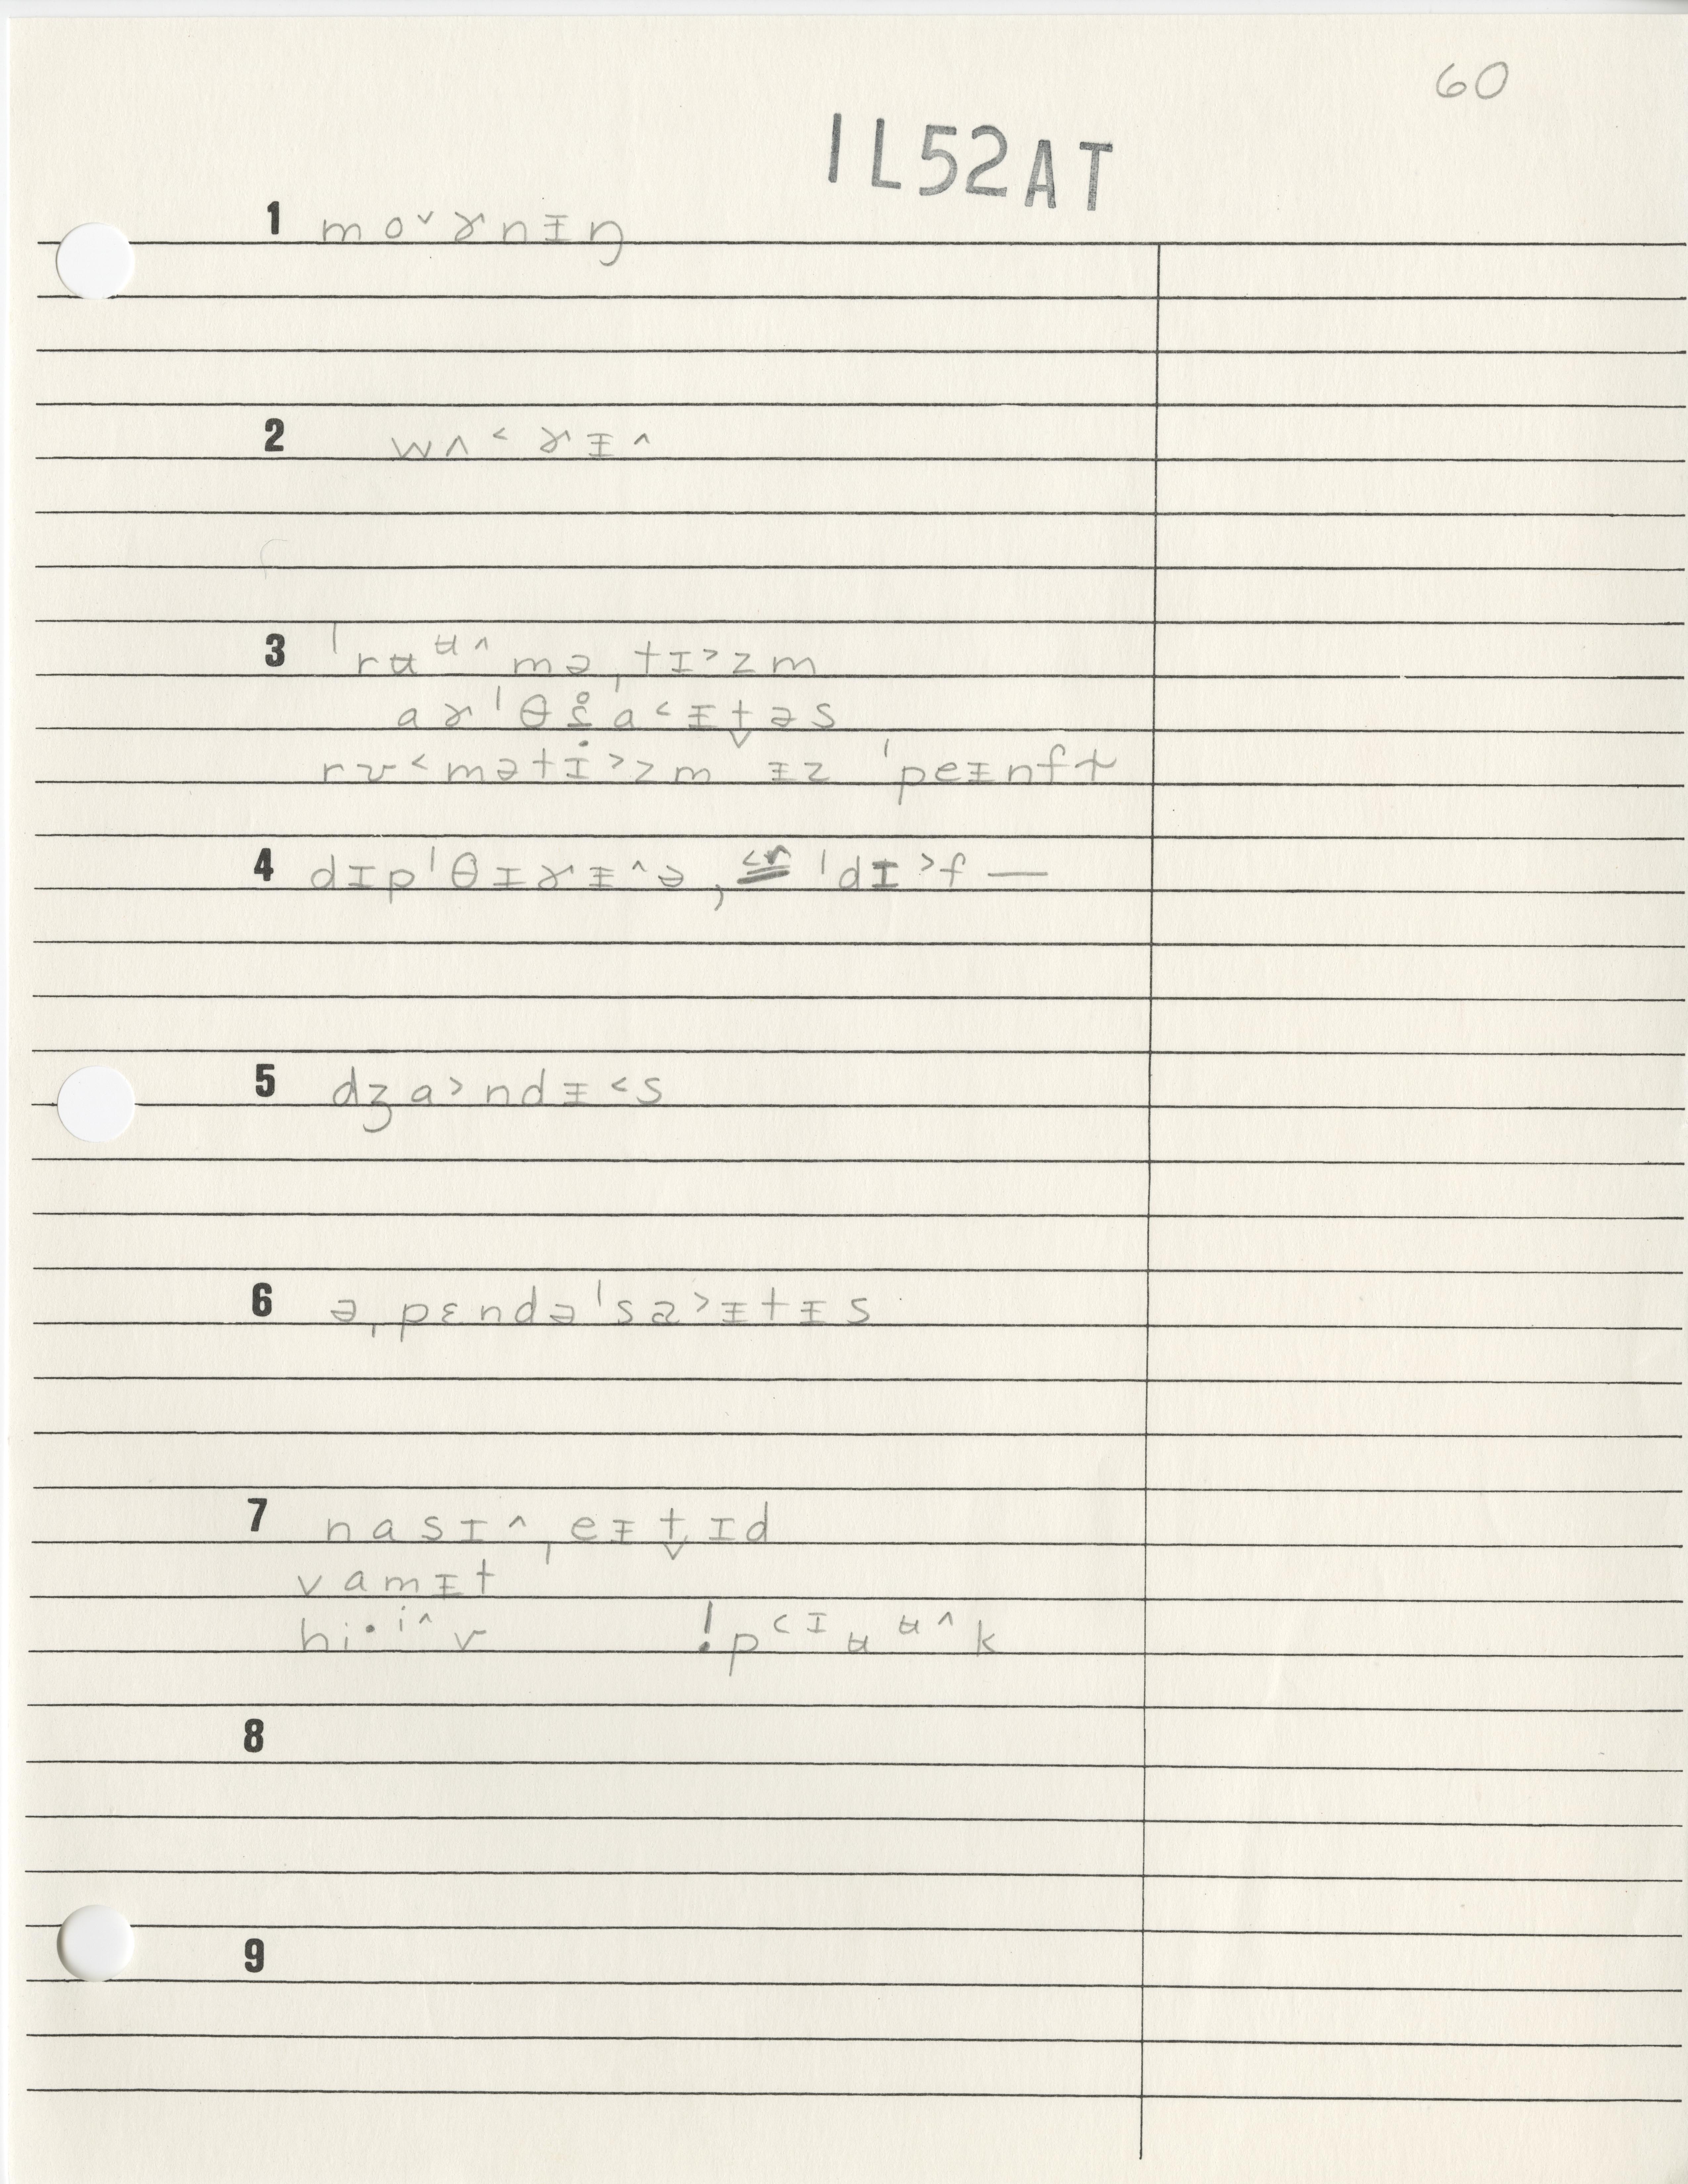 60
1L52AT
1 mo˅ɤnɪ̵ŋ
2 wʌ˂ɤɪ̵˄
3 ˈrʉᵾ˄mə̵ˌtɪ˃zm
aɤˈθs̥a˂ɪ̵t̬əs
rʊ˂mətɨ˃zm ɪ̵z ˈpeɪ̵nft
4 dɪpˈθɪɤɪ̵˄ə, ˈdɪ˃f —
5 dʒa˃ndɪ̵˂s
6 əˌpɛndəˈsa˃ɪ̵tɪ̵s
7 nasɪ˄ˌeɪ̵t̬ɪd
vamɪ̵t
hi·ⁱ˄v !p˂ᶦʉᵾ˄k
8
9